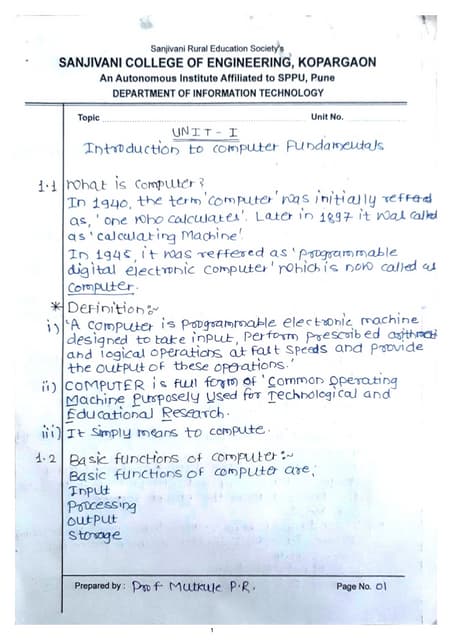 Sanjivani Rural Education Society's
SANJIVANI COLLEGE OF ENGINEERING, KOPARGAON
An Autonomous Institute Affiliated to SPPU, Pune
DEPARTMENT OF INFORMATION TECHNOLOGY
Topic Unit No.
UNIT - I
Introduction to computer Fundamentals
1.1 What is computer?
In 1940, the term 'computer' was initially reffered
as, 'one who calculates'. Later in 1897 it was called
as 'calculating Machine'.
In 1945, it was reffered as 'programmable
digital electronic computer' which is now called as
computer.
* Definition:~
i) 'A computer is programmable electronic machine
designed to take input, perform prescribed arithmetic
and logical operations at fast speeds and provide
the output of these operations.'
ii) COMPUTER is full form of 'Common Operating
Machine Purposely Used for Technological and
Educational Research.
iii) It simply means to compute.
1.2 Basic functions of computer:~
Basic functions of computer are,
Input
Processing
output
Storage
Prepared by : Prof Mutkule P.R. Page No. 01
1